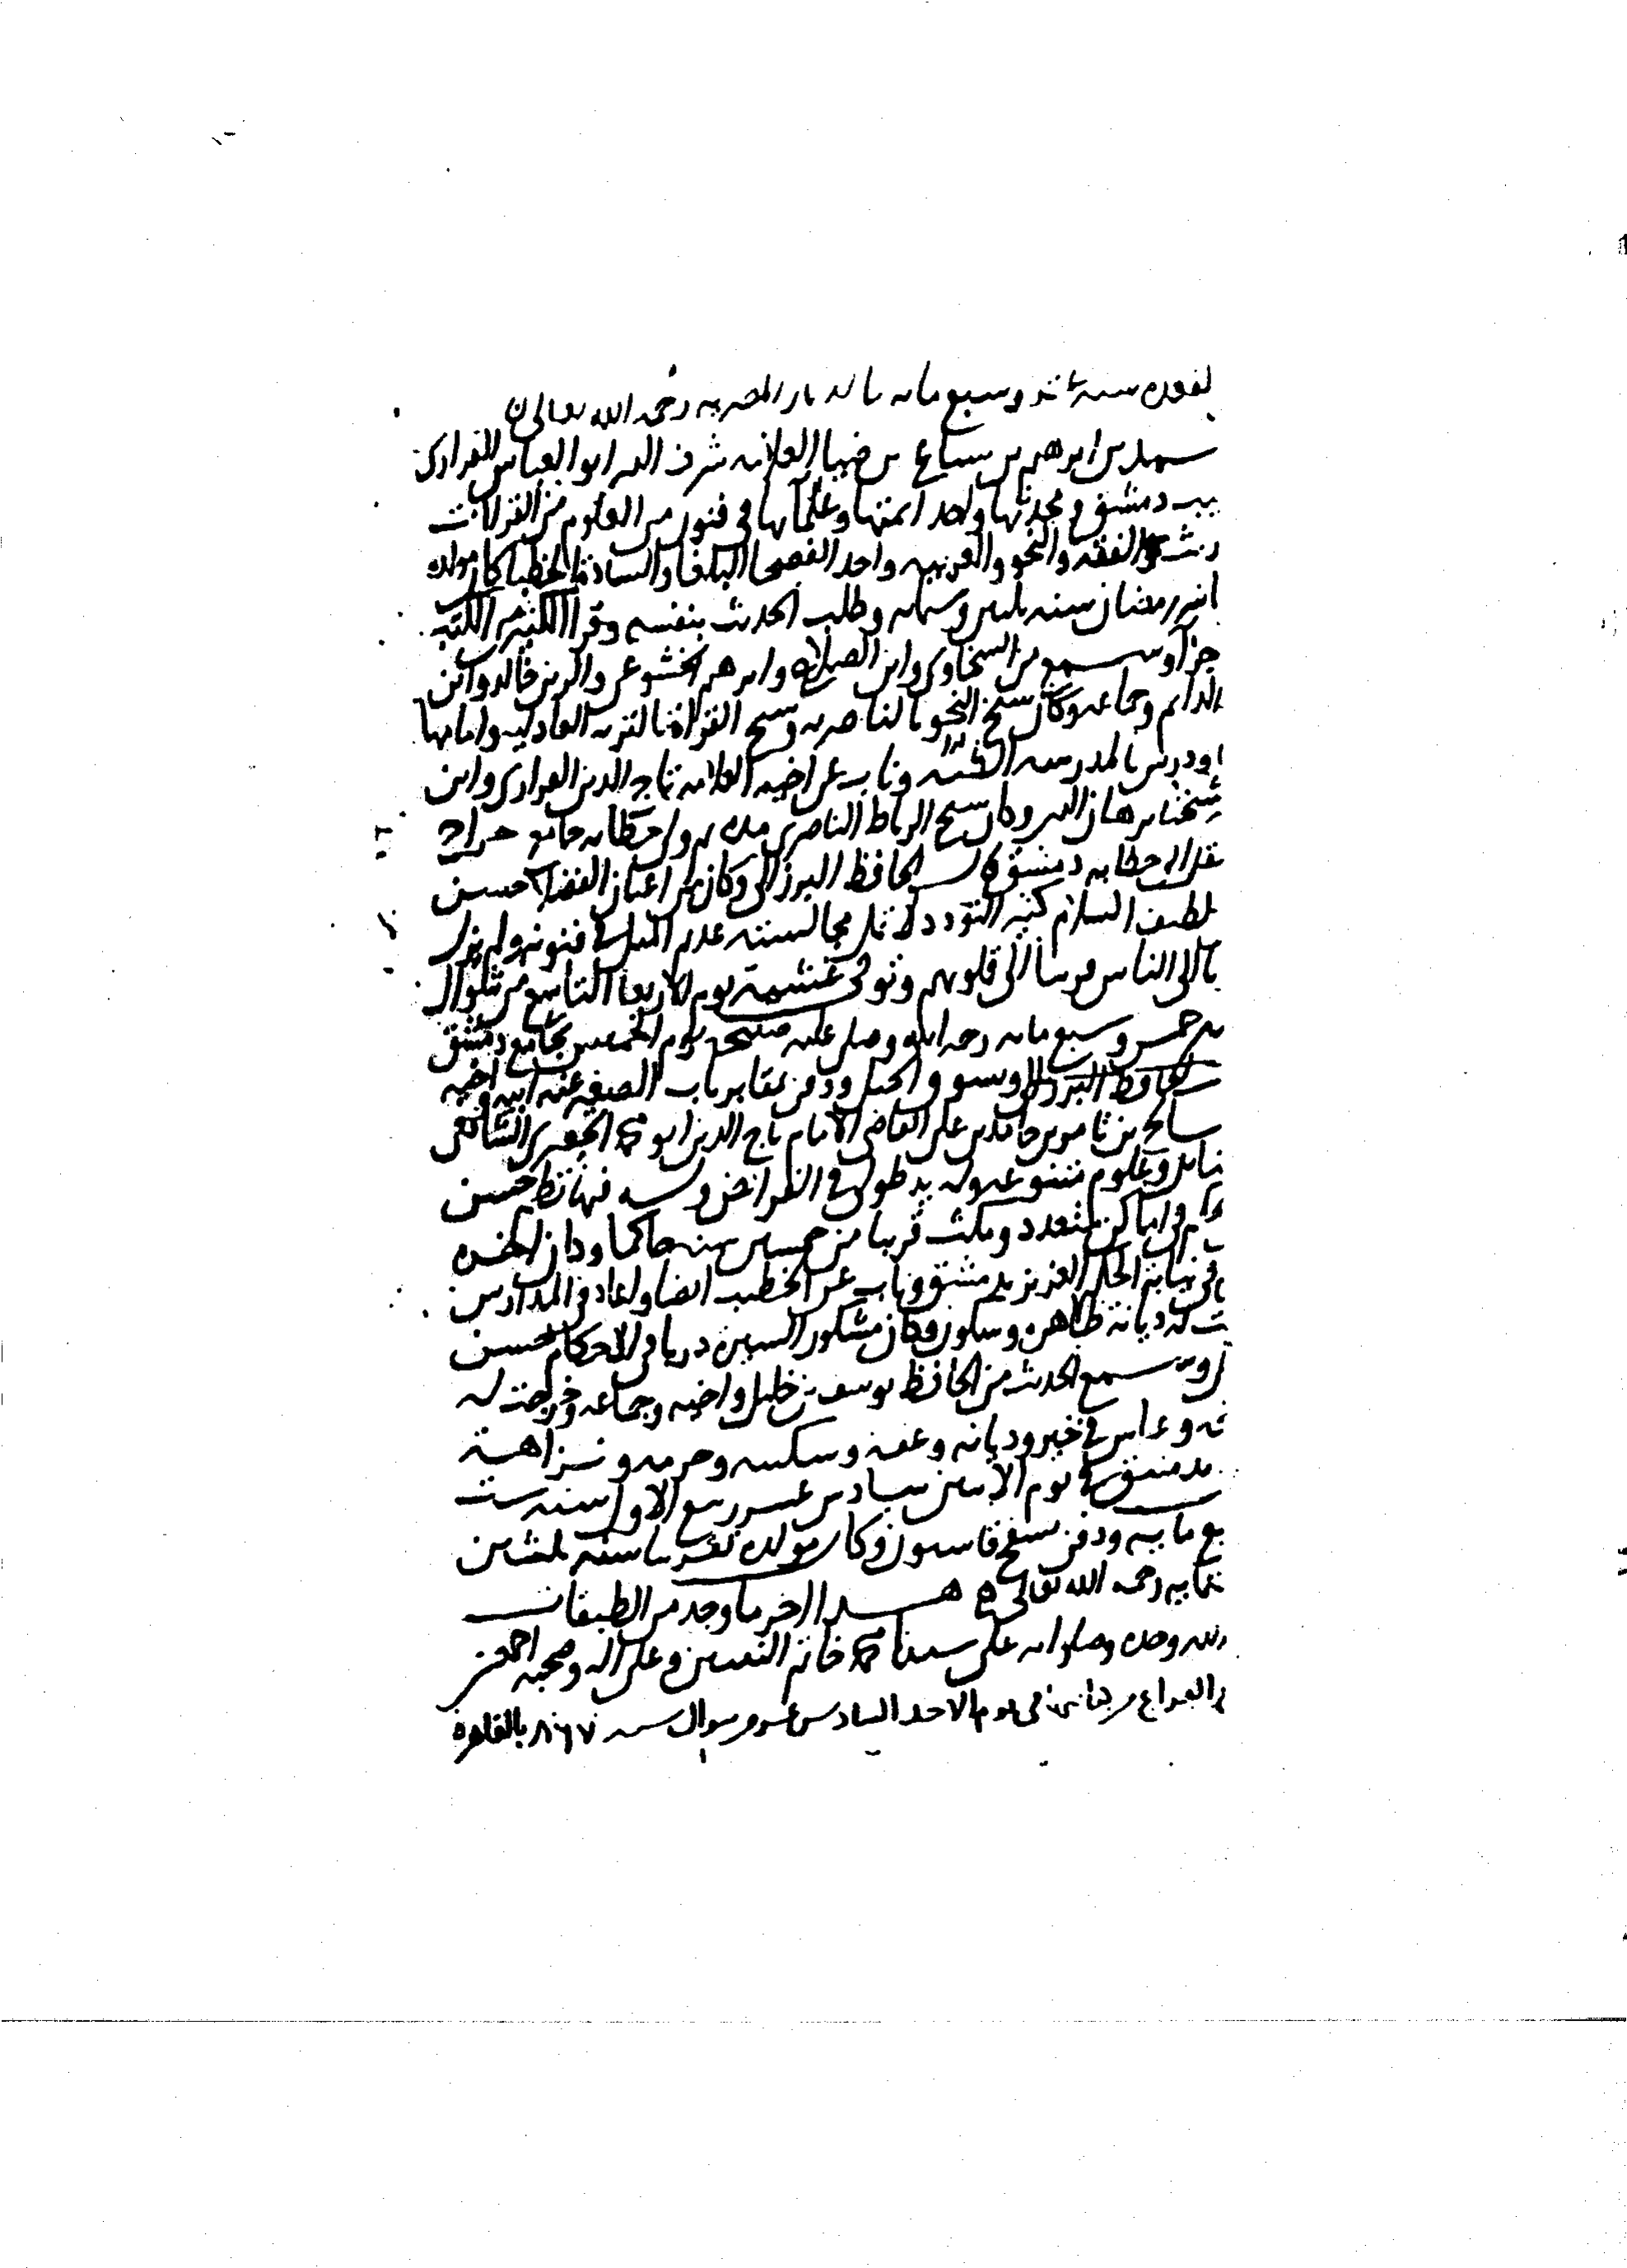 سنة عشر وسبع مايه بالديار المصريه رحمه الله تعالى
بن ابرهيم بن سباع بن ضيا العلامه شرف الدين ابو العباس الفزاري
يب دمشق ومحدثها واحد ائمتها وعلمآيها في فنون من العلوم من القرآآت
والفقه والنحو والعربيه واحد الفصحا البلغا والسادة الخطبا كان مولده
رمضان سنه ثلثين وستمايه وطلب الحديث بنفسه وقرأ الكثير من الكتب
وسمع من السخاوي وابن الصلاح وابرهيم الخشوعي والزين خالد وابن
الدايم وجماعه وكان شيخ النحو بالناصريه وشيخ القرآة بالتربه العادليه وامامها
ودرس بالمدرسه وناب عن اخيه العلامه تاج الدين الفزاري وابن
شيخنا برهان الدين وكان شيخ الرباط الناصري مده ثم ولي خطابه جامع جراح
نقل الى خطابه دمشق قال الحافظ البرزالي وكان من اعيان الفضلا حسن
لطيف السلام كثير التودد لا تمل مجالسته عديم المثل في فنونه ولم يزل
الى الناس الى قلوبهم وتوفي عشية يوم الاربعا التاسع من شوال
خمس وسبع مايه رحمه الله وصلى عليه صبيحه يوم الخميس بجامع دمشق
وسوق الخيل ودفن بمقابر باب الصغير عند ابيه واخيه
صالح بن ثامر بن حامد بن علي القاضي الامام تاج الدين ابو محمد الجعبري الشافعي
وعلوم متنوعه وله يد طولى في الفرايض وله فيها نظم حسن
في اماكن متعدد ومكث قريبا من خمسين سنه حاكما
في نيابة الحكم العزيز بدمشق وناب عن الخطيب ايضا واعاد في المدارس
ت له ديانة ظاهره وسكون وكان مشكور السيره دريا في الاحكام حسن
وسمع الحديث من الحافظ يوسف بن خليل واخيه وجماعه وخرجت له
وعاش في خير وديانه وعفه وسكينه وحرمه ونزاهة
بدمشق في يوم الاثنين سادس عشر ربيع الاول سنه ست
بع مايه ودفن بسفح قاسيون وكان مولده تقريبا سنه ثلثين
تمايه رحمه الله تعالى هذا اخر ما وجد من الطبقات
لله وحده وصلواته على سيدنا محمد خاتم النبيين وعلى اله وصحبه اجمعين
الفراغ من كتابته في يوم الاحد السادس عشر من شوال سنه ٨٦٧ بالقاهرة